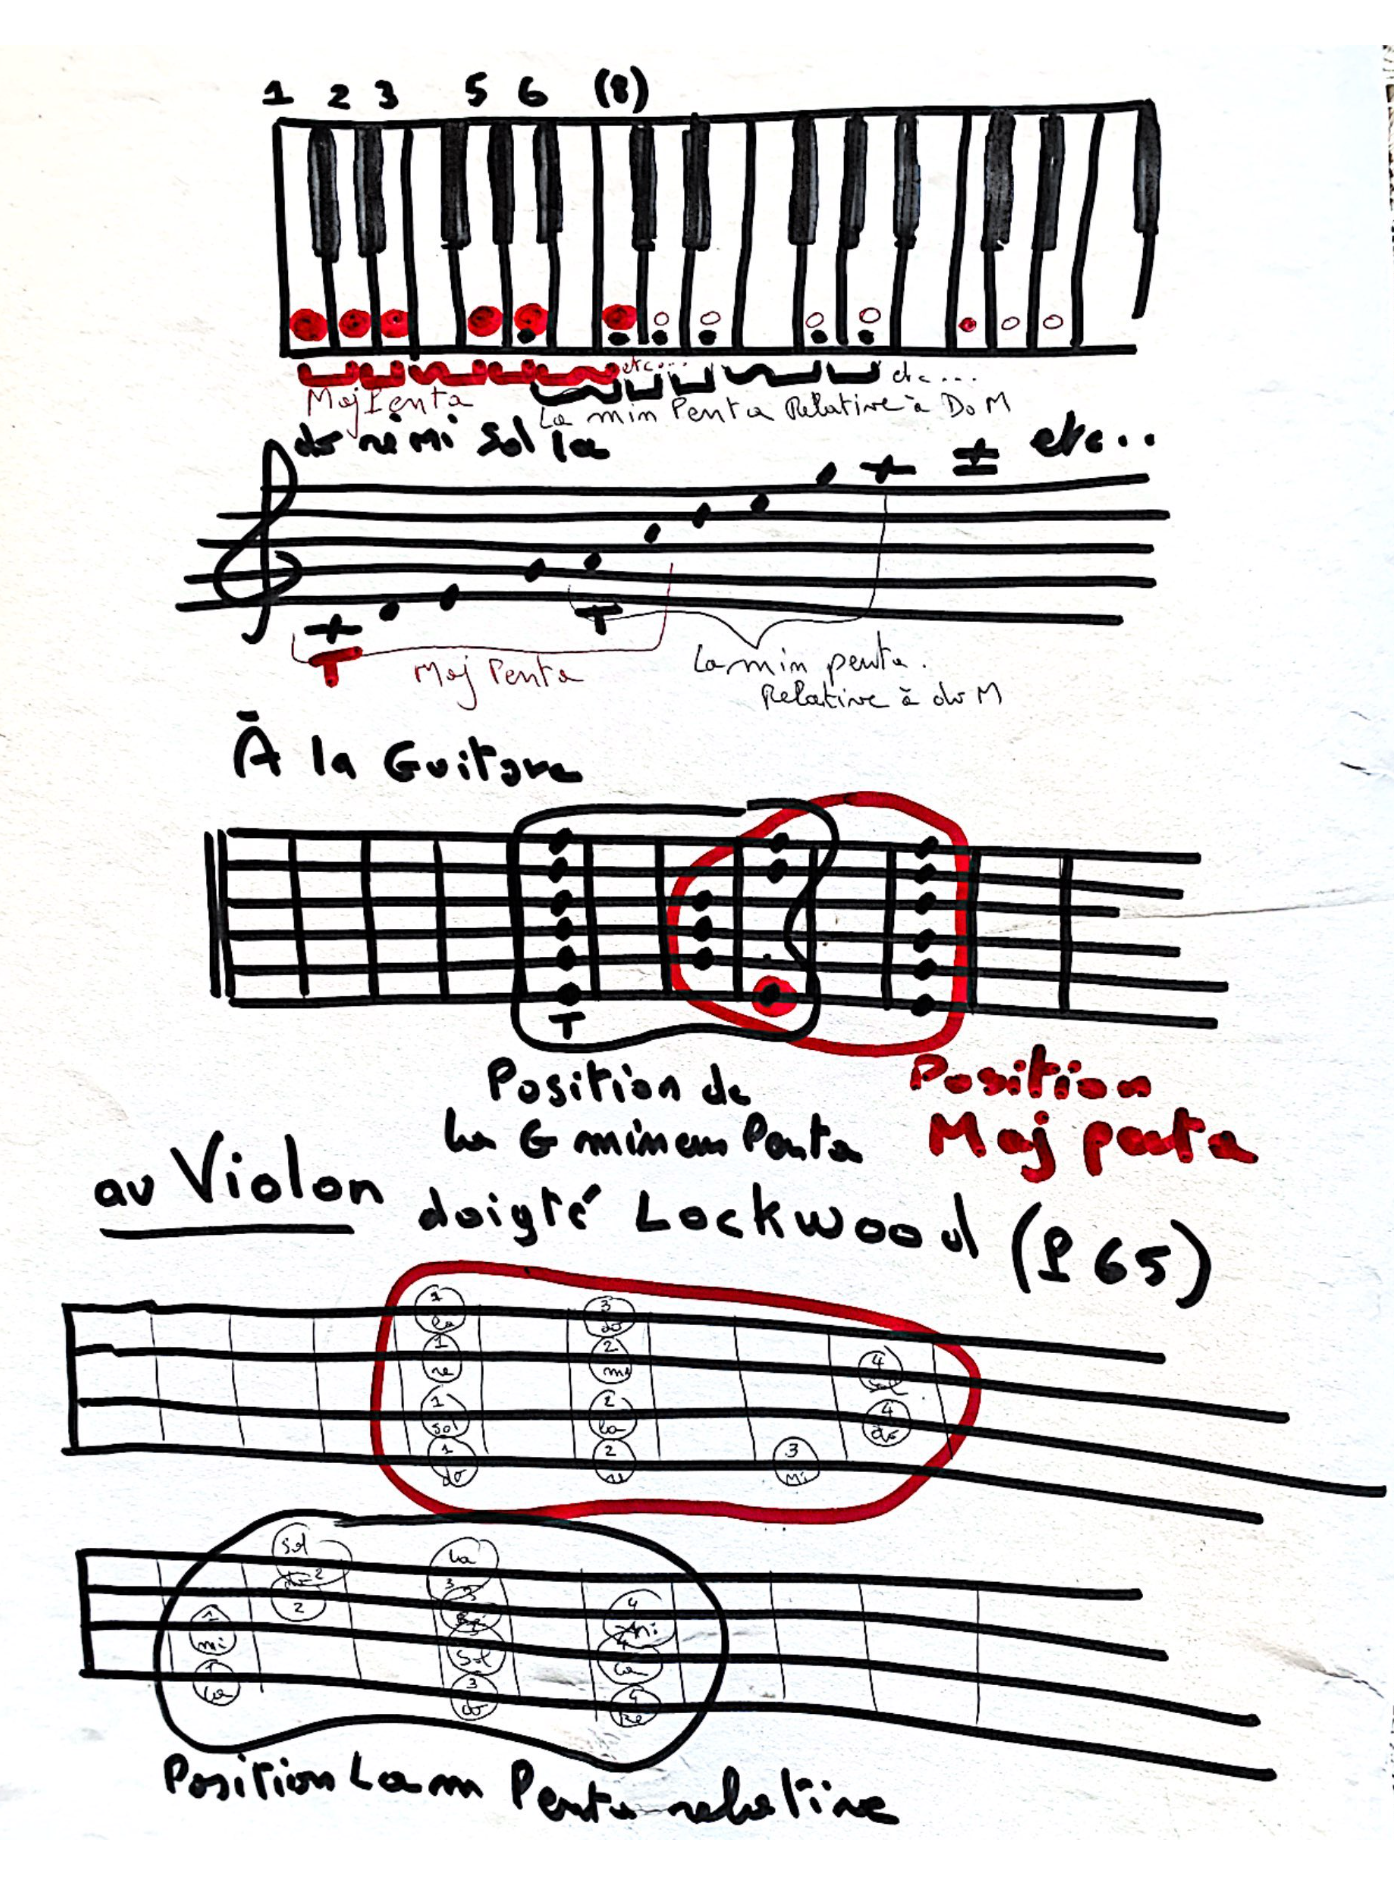 1 2 3 5 6 (8)
etc...
etc...
Maj Penta
La min Penta Relative à Do M
do ré mi Sol la
etc..
T
T
Maj Penta
La min penta.
Relative à do M
À la Guitare
T
Position de
Position
Maj penta
au Violon doigté Lockwood (P 65)
1 la
3 do
1 re
2 mi
4 sol
1 sol
2 la
4 do
1 do
2 re
3 Mi
Sol 2
la 3
do 2
4 mi
1 mi
Sol
la
1 la
3 do
4 Re
Position La m Penta relative